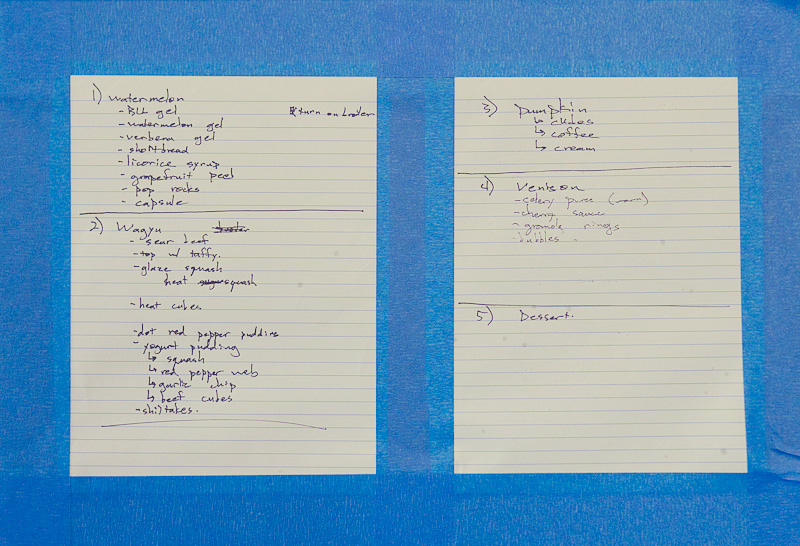 1) Watermelon
- BLL gel
turn on broiler
- watermelon gel
- verbena gel
- shortbread
- licorice syrup
- grapefruit peel
- pop rocks
- capsule
2) Wagyu
- sear beef
- top w/ taffy.
- glaze squash
heat squash
- heat cubes
- dot red pepper pudding
- yogurt pudding
↳ squash
↳ red pepper web
↳ garlic chip
↳ beef cubes
- shiitakes.
3) pumpkin
↳ cubes
↳ coffee
↳ cream
4) Venison
- celery puree (warm)
- cherry sauce
- granola rings
- bubbles
5) Dessert.